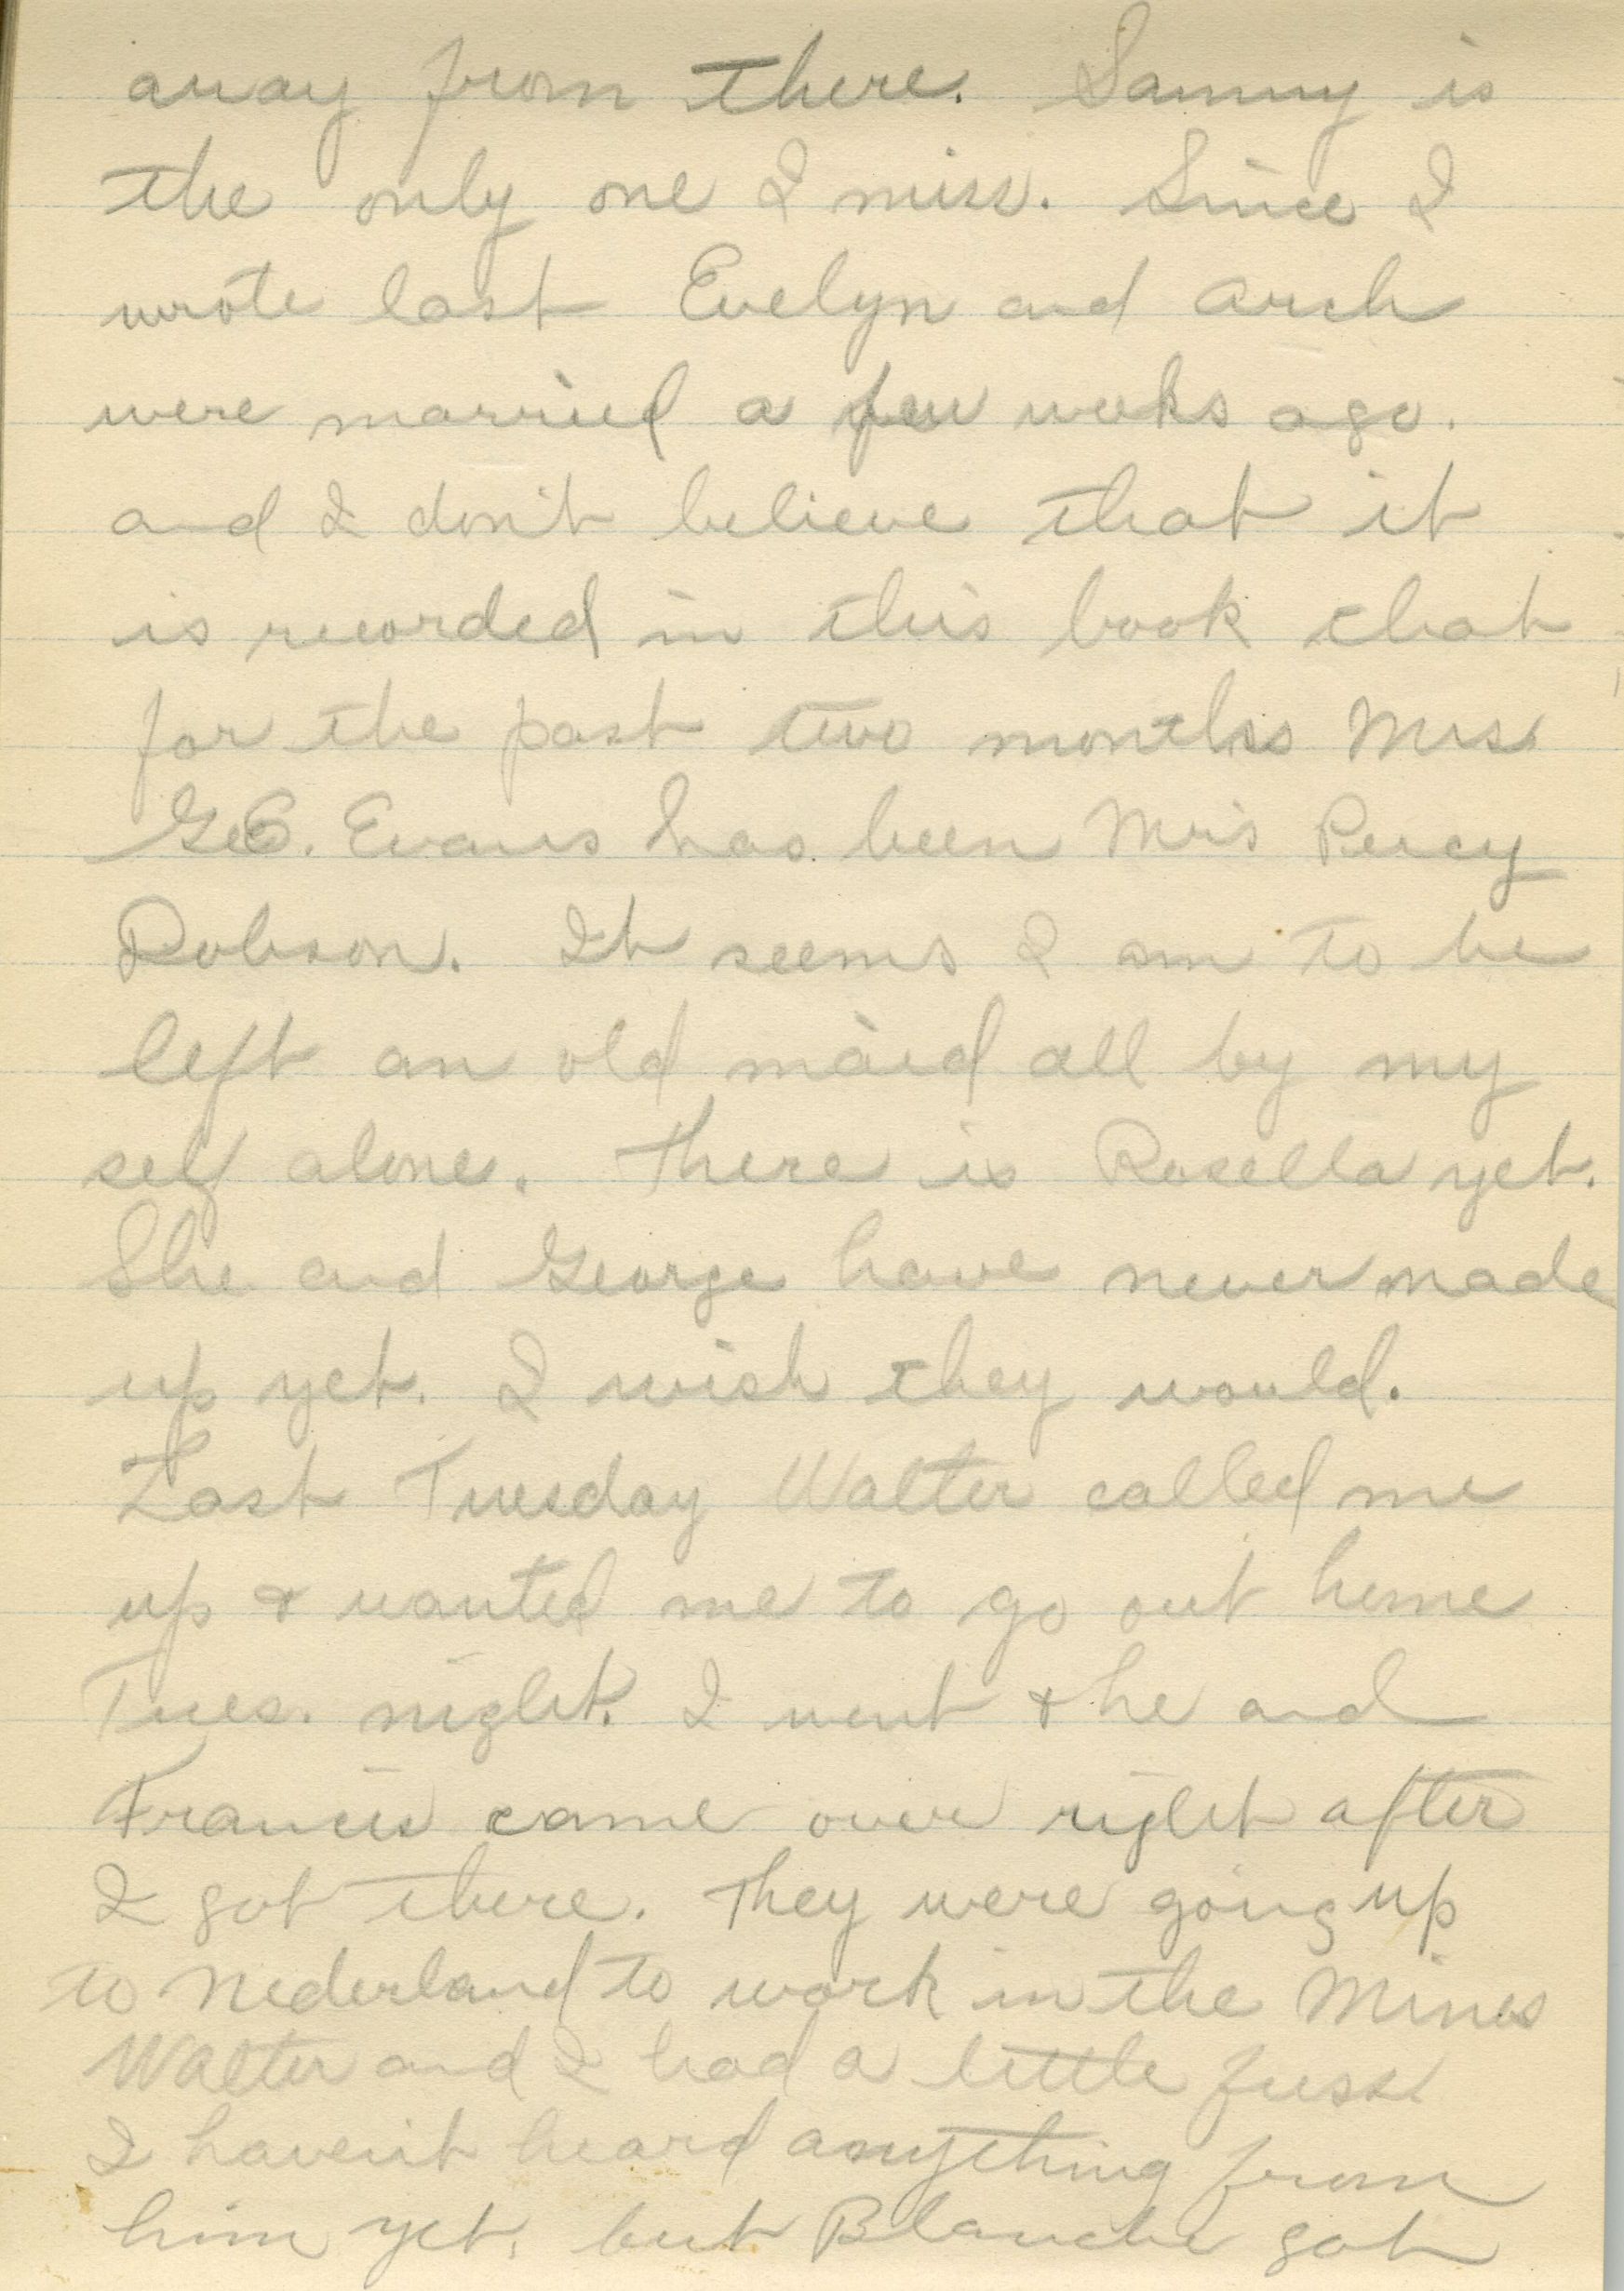 away from there. Sammy is
the only one I miss. Since I
wrote last Evelyn and Arch
were married a few weeks ago.
and I don't believe that it
is recorded in this book that
for the past two months Mrs.
Evans has been Mrs Percy
Robson. It seems I am to be
left an old maid all by my
self alone. There is Rosella yet.
She and George have never made
up yet. I wish they would.
Last Tuesday Walter called me
up & wanted me to go out home
Tues. night. I went & he and
Francis came over right after
I got there. They were going up
to Nederland to work in the Mines
Walter and I had a little fuss
I haven't heard anything from
him yet, but Blanche got